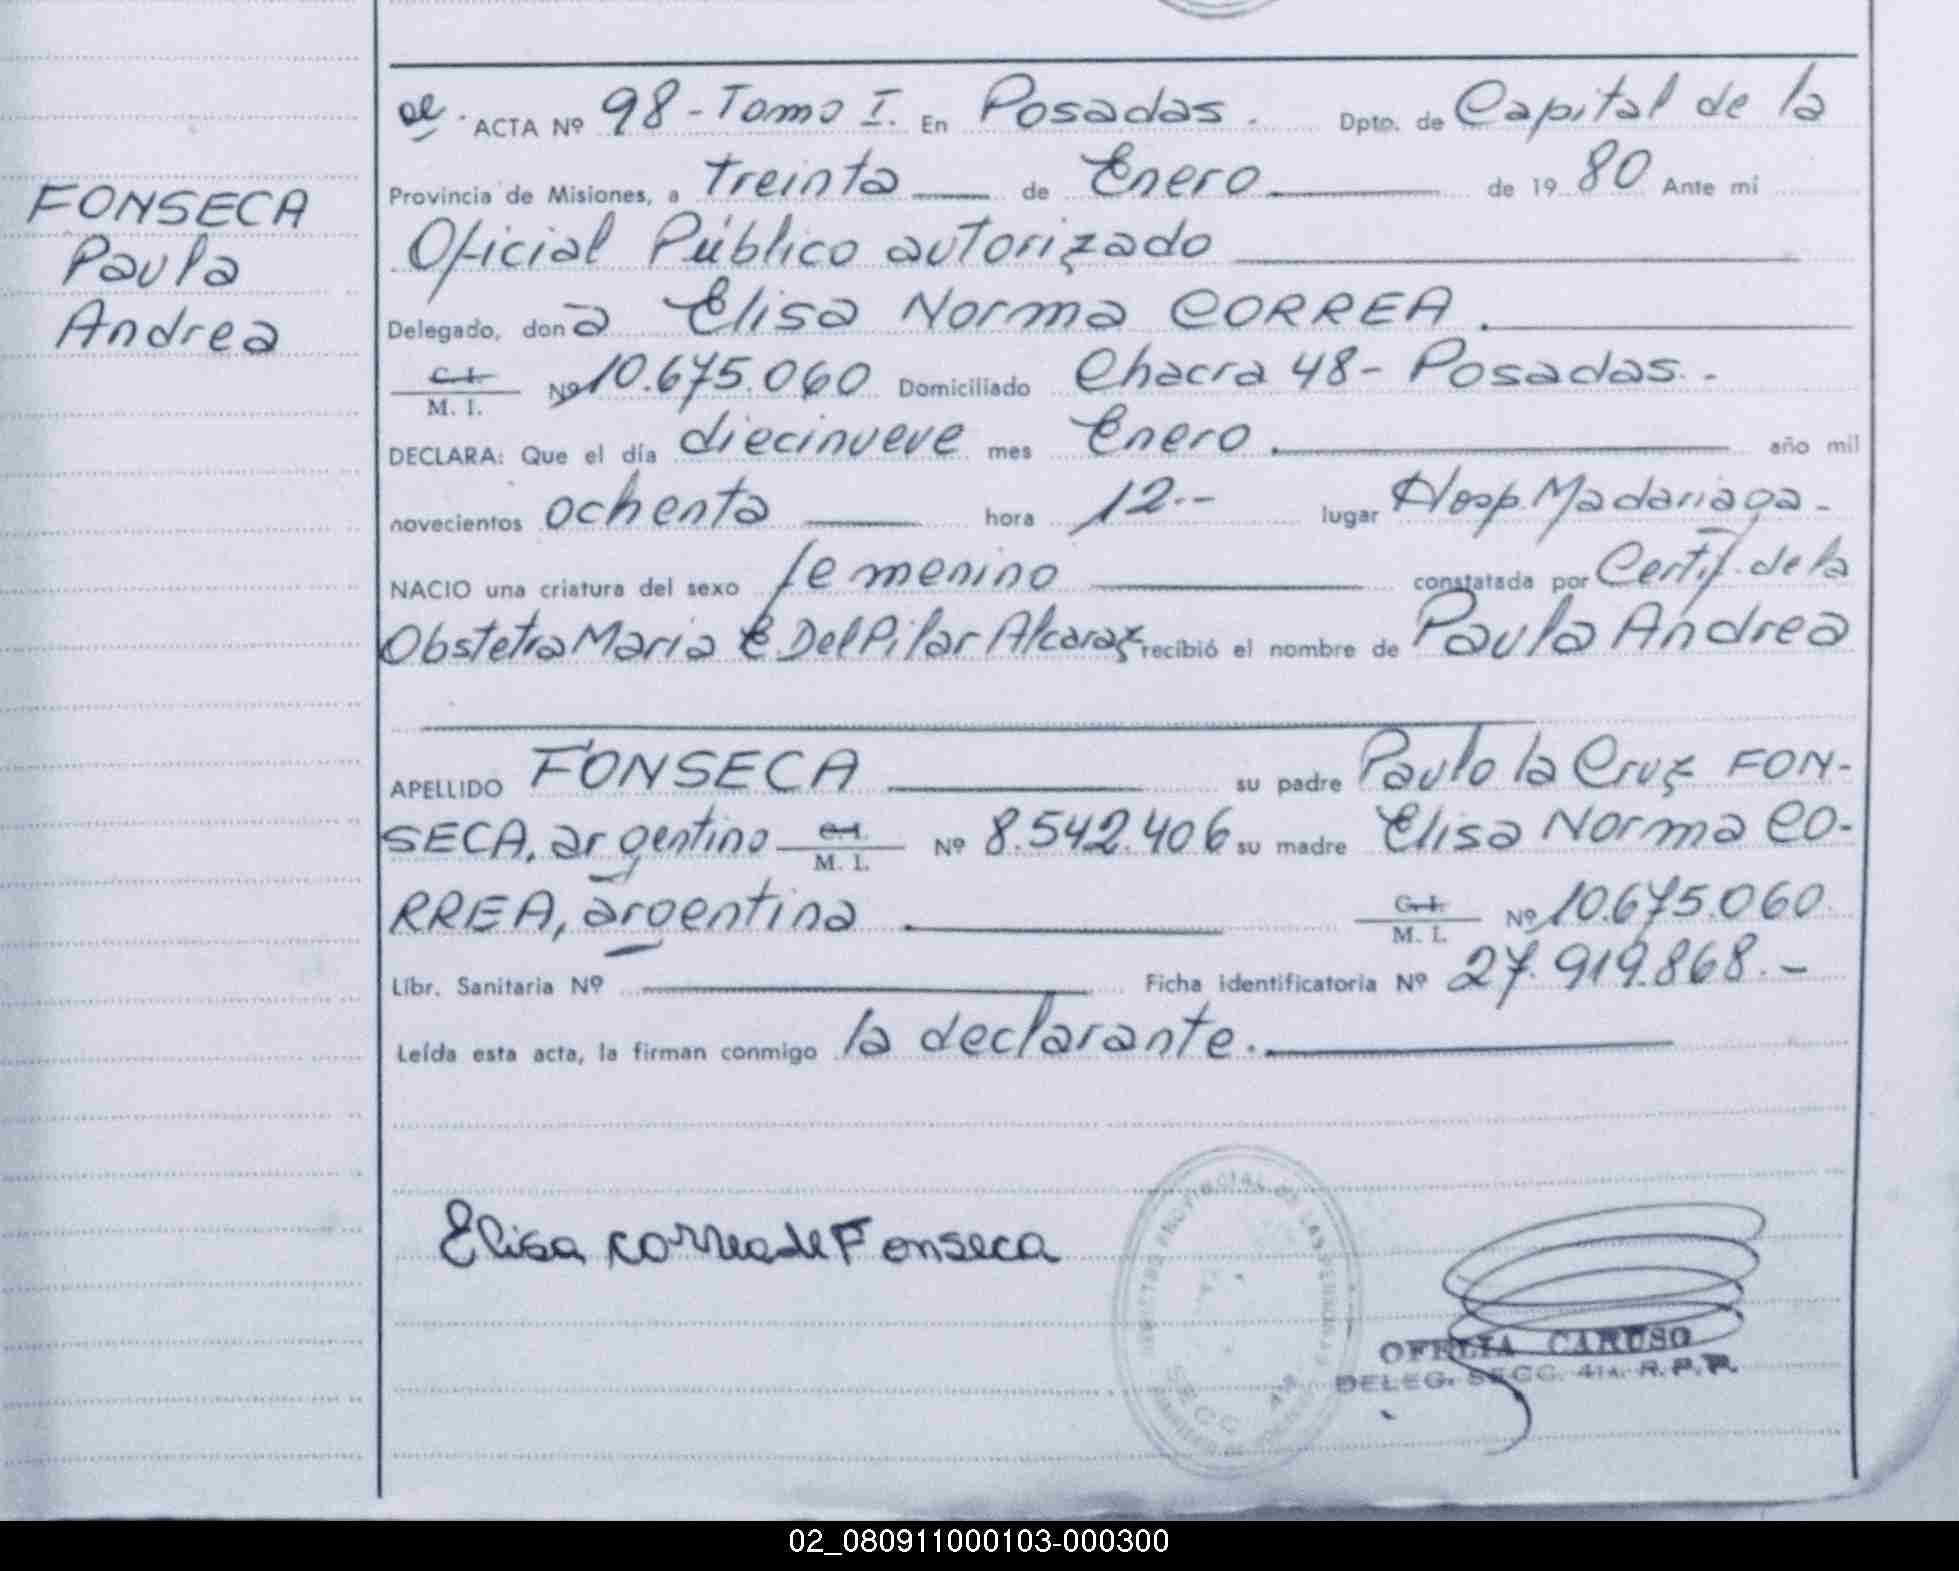 FONSECA
Paula
Andrea
ACTA Nº 98 - Tomo I. En Posadas. Dpto. de Capital de la
Provincia de Misiones, a treinta de Enero de 1980 Ante mí
Oficial Público autorizado
Delegado, don a Elisa Norma CORREA.
C. I.
M. I. Nº 10.675.060 Domiciliado Chacra 48 - Posadas.-
DECLARA: Que el día diecinueve mes Enero. año mil
novecientos ochenta hora 12.-- lugar Hosp. Madariaga.-
NACIO una criatura del sexo femenino constatada por Certif. de la
Obstetra Maria E Del Pilar Alcaraz recibió el nombre de Paula Andrea
APELLIDO FONSECA su padre Paulo la Cruz FON-
SECA, argentino C.I. M. I. Nº 8.542.406 su madre Elisa Norma CO-
RREA, argentina. C.I. M. I. Nº 10.675.060
Libr. Sanitaria Nº Ficha Identificatoria Nº 27.919.868.-
Leída esta acta, la firman conmigo la declarante.
Elisa correa de Fonseca
SECC 4a
OFELIA CARUSO
DELEG. SECC. 4ta. R.P.P.
02_080911000103-000300